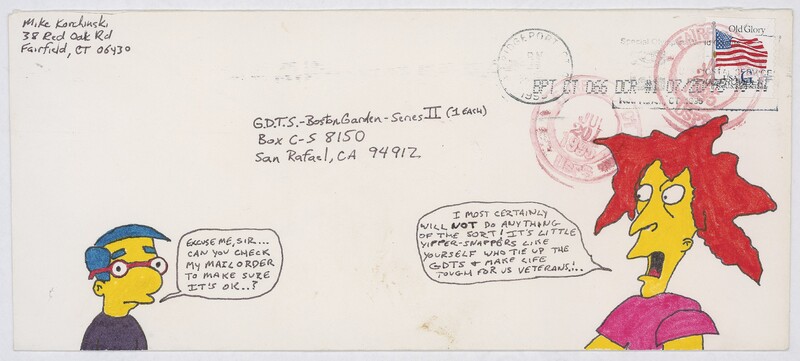 Mike Korchinski
38 Red Oak Rd
Fairfield, CT 06430
Old Glory
BPT CT 066 DCR #1 07/20/95
G.D.T.S.-Boston Garden-Series II (1 EACH)
Box C-S 8150
San Rafael, CA 94912
JUL
20
1995
USPS
EXCUSE ME, SIR...
CAN YOU CHECK
MY MAILORDER
TO MAKE SURE
IT'S OK..?
I MOST CERTAINLY
WILL NOT DO ANYTHING
OF THE SORT! IT'S LITTLE
YIPPER-SNAPPERS LIKE
YOURSELF WHO TIE UP THE
GDTS & MAKE LIFE
TOUGH FOR US VETERANS!...